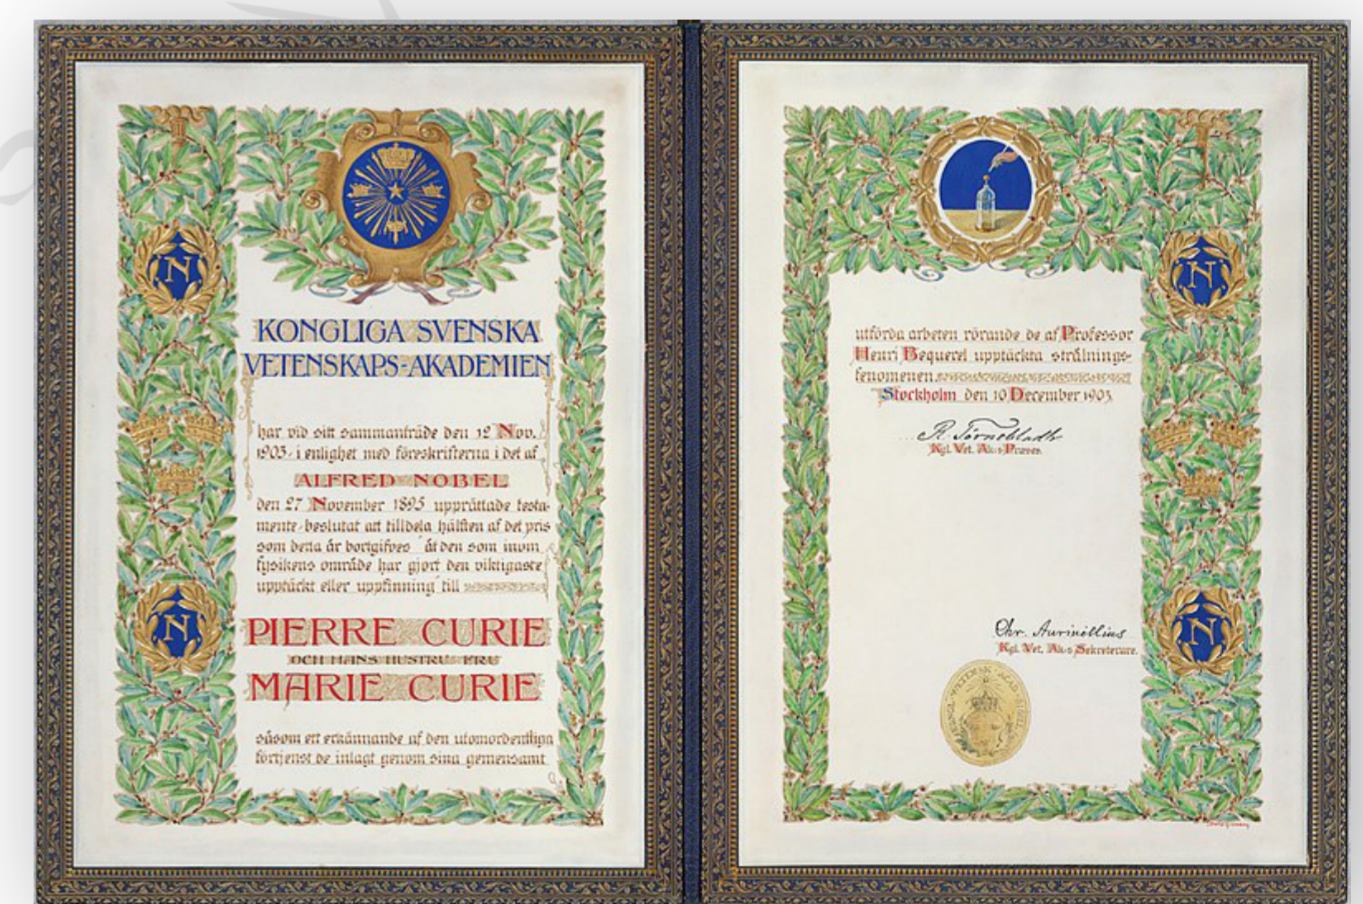 N
KONGLIGA SVENSKA
VETENSKAPS-AKADEMIEN
har vid sitt sammanträde den 12 Nov.
1903 i enlighet med föreskrifterna i det af
ALFRED NOBEL
den 27 November 1895 upprättade testa-
mente beslutat att tilldela hälften af det pris
som detta år bortgifves åt den som inom
fysikens område har gjort den viktigaste
upptäckt eller uppfinning till
N
PIERRE CURIE
OCH HANS HUSTRU FRU
MARIE CURIE
såsom ett erkännande af den utomordentliga
förtjenst de inlagt genom sina gemensamt
N
utförda arbeten rörande de af Professor
Henri Bequerel upptäckta strålnings-
fenomenen
Stockholm den 10 December 1903
R. Törnebladh
Kgl. Vet. Ak:s Præses.
N
Chr. Aurivillius
Kgl. Vet. Ak:s Sekreterare.